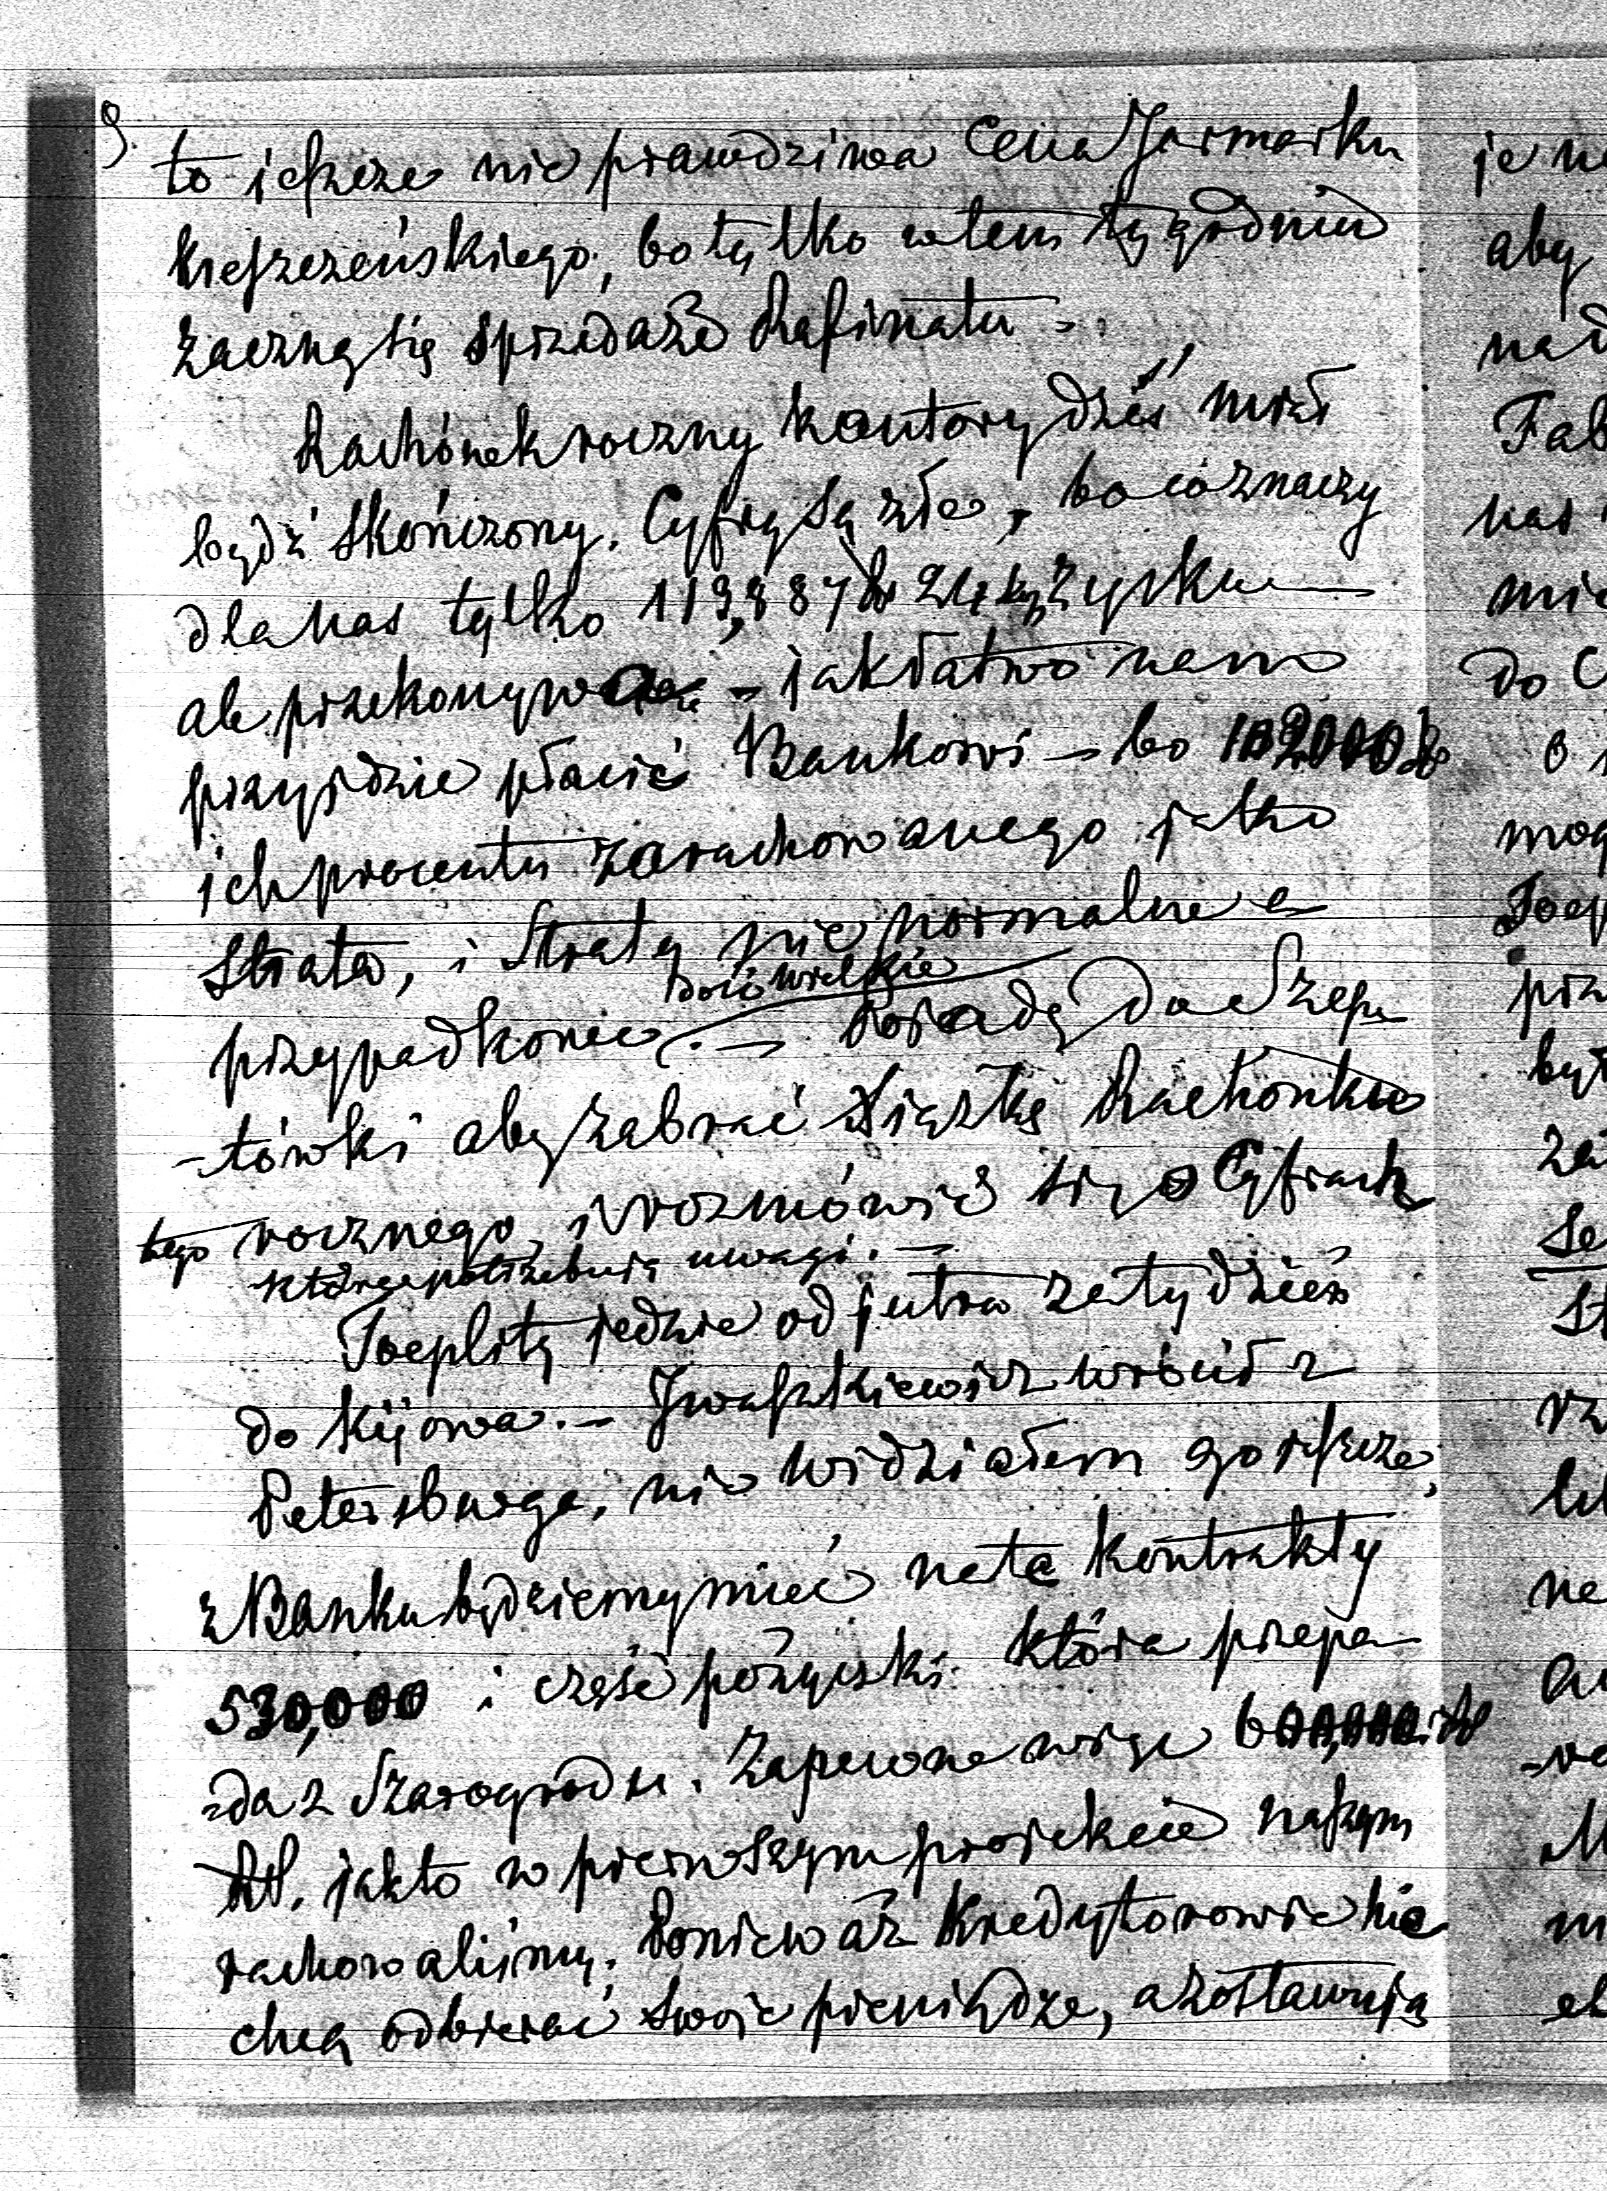 9.
to jeszcze nie prawdziwa cena Jarmarku
Kreszczeńskiego, bo tylko w tem tygodniu
zaczną się sprzedaże Rafinatu -.
Rachónek roczny kantory dziś miał
bydź skończony. Cyfry są złe, bo co znaczy
dla nas tylko 119,887 zysku
ale przekonywa - jak łatwo nam
przyjdzie płacić Bankowi - bo 102000
ich procentu zarachowanego jako
strata, i straty nie normalne a
dość wielkie
przypadkowe. - Posadę do Szepe
-tówki aby zabrać książkę Rachónku
tego rocznego, i rozmówić się o Cyfrach
które potrzebują uwagi. -
Toeplitz jedzie od jutra za tydzień
do Kijowa. - Iwaszkiewicz wrócił z
Petersburga, nie widziałem go jeszcze,
z Banku będziemy mieć na te kontrakty
530,000 i część pożyczki która przepa
-da z Szarogrodu. Zapewne więc 600,000
RS. jak to w pierwszym projekcie naszym
rachowaliśmy. Ponieważ Kredytorowie nie
chcą odbierać swoje pieniądze, a zostawują
je
aby
Fab
nas
do C
o
mog
prz
był
ne